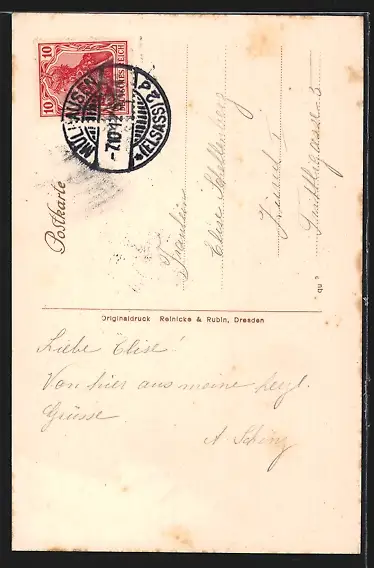 10 10
DEUTSCHES REICH
MÜLHAUSEN
(ELSASS) 2
Postkarte
Fräulein
Elise Schellenberg
Zürich I
Originaldruck Reinicke & Rubin, Dresden
Liebe Elise!
Von hier aus meine herzl.
Grüsse
A. Schinz